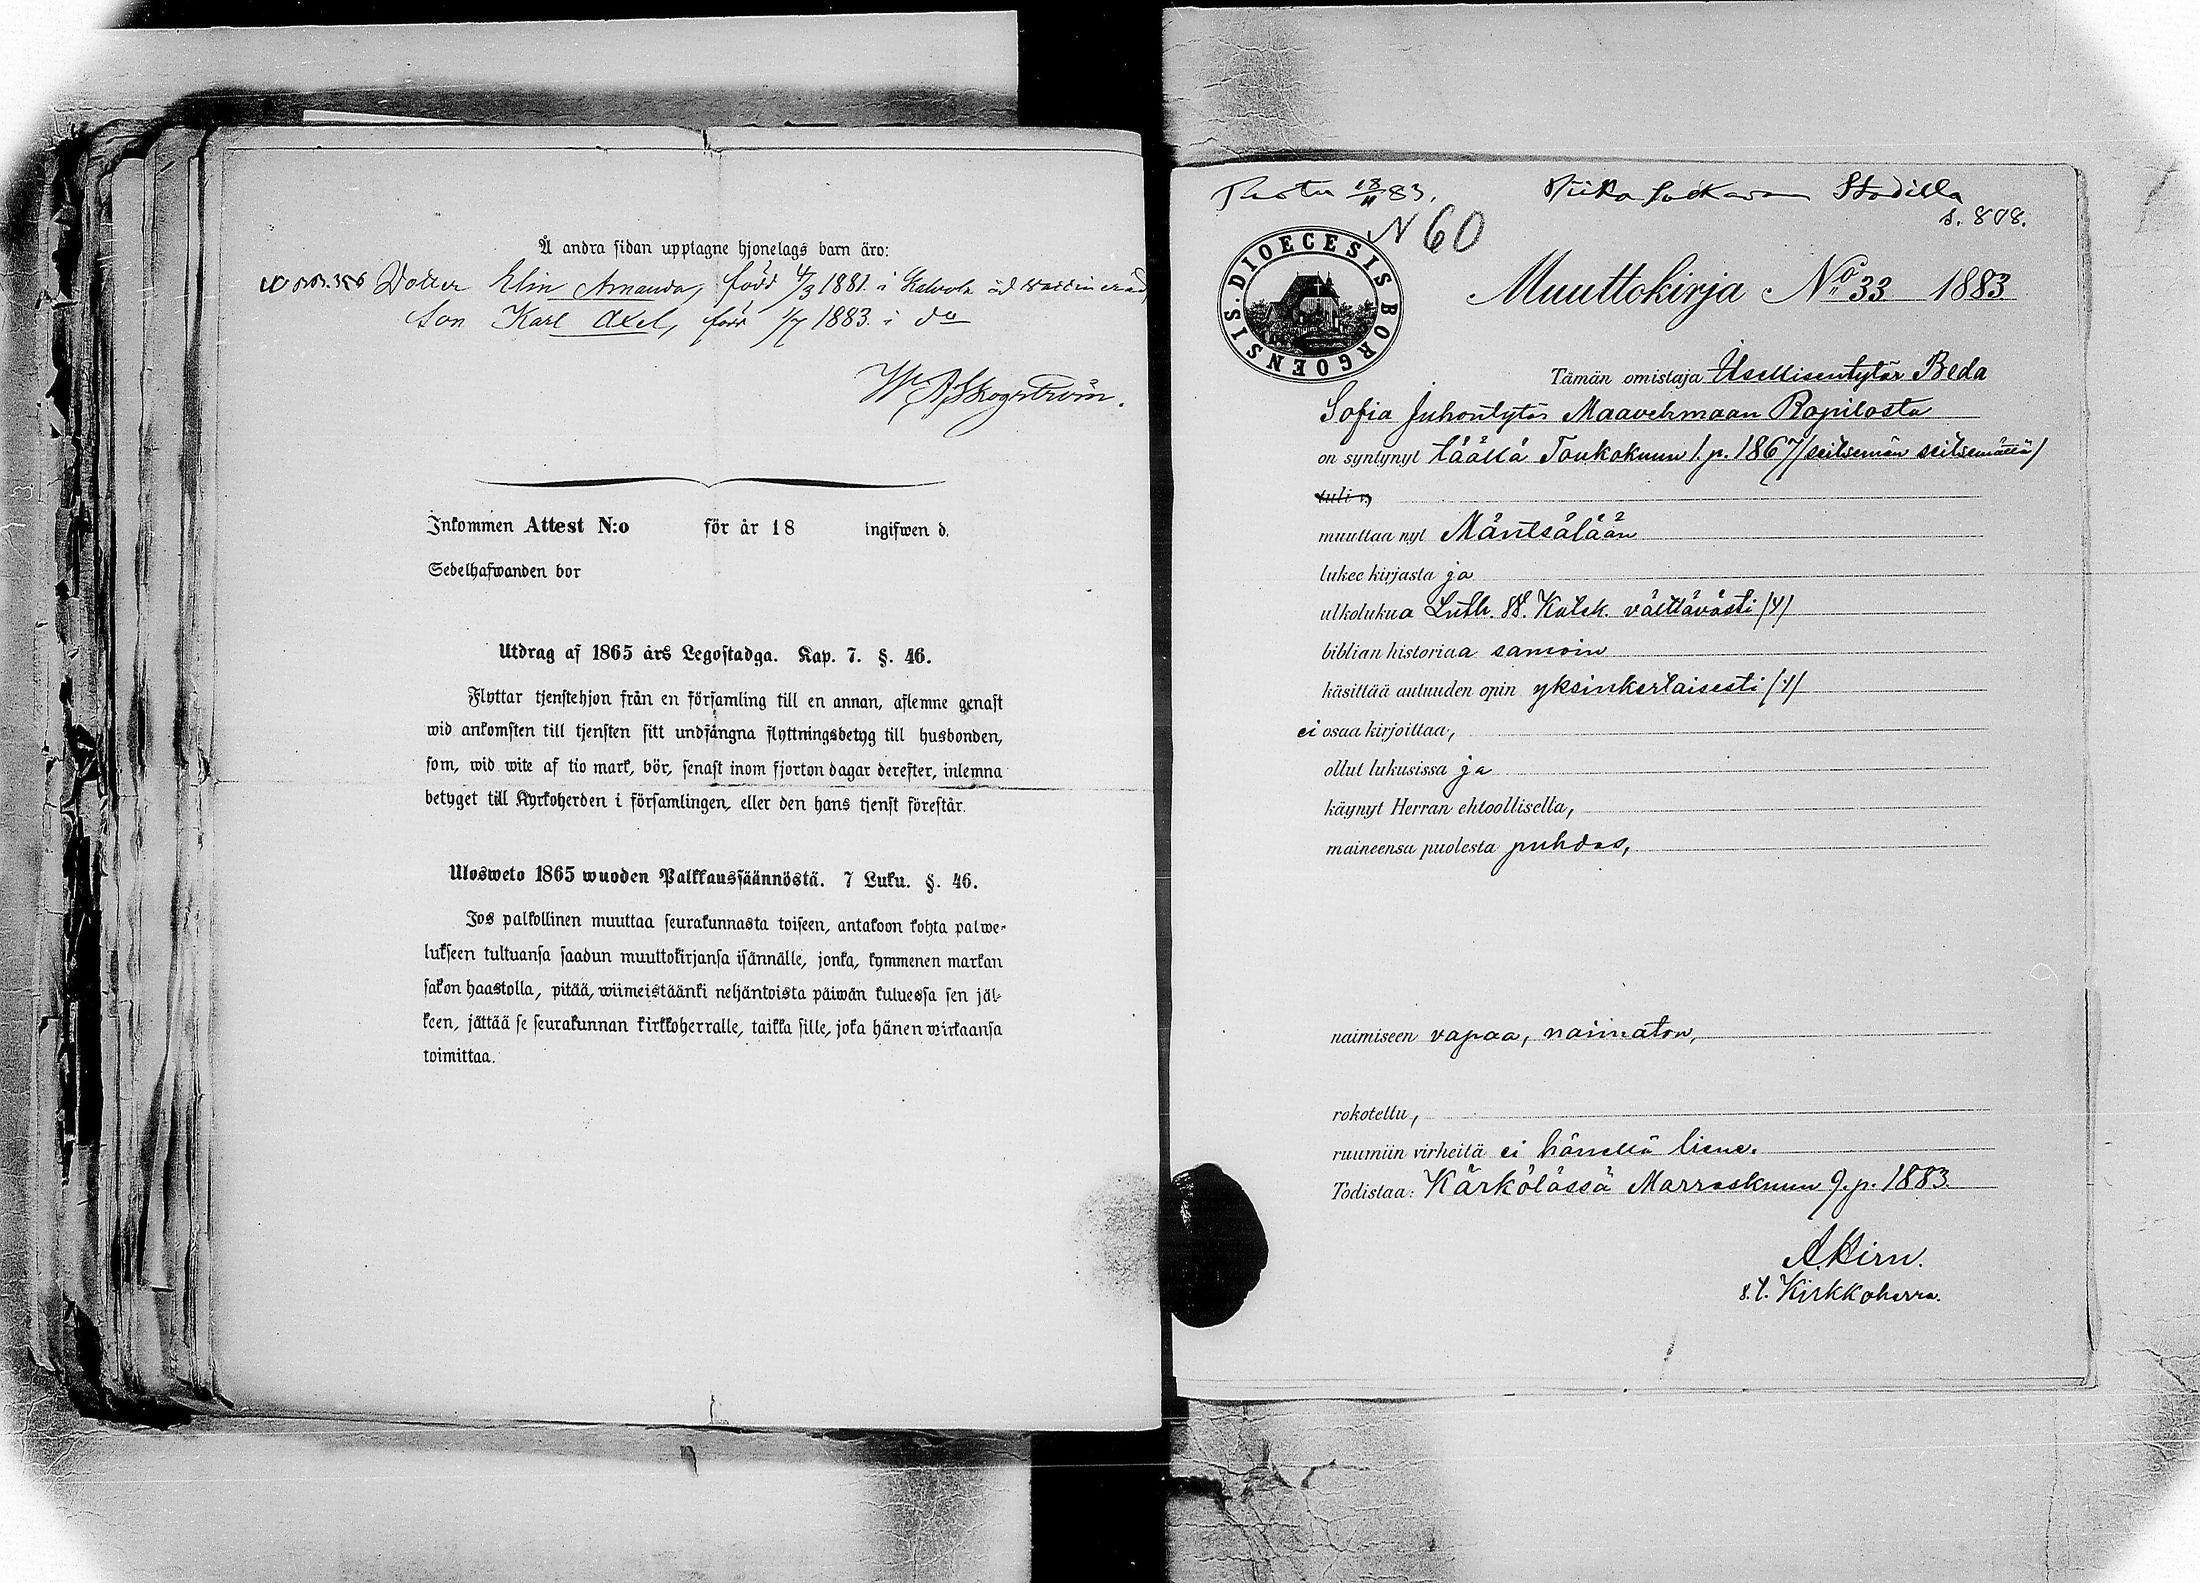 Å andra sidan upptagne hjonelags barn äro:
Dotter Elin Amanda, född 4/3 1881. i Kalvola
Son Karl Axel, född 1/7 1883. i do
Skogström.
Inkommen Attest N:o för år 18 ingifwen d.
Sedelhafwanden bor
Utdrag af 1865 års Legostadga. Kap. 7. §. 46.
Flyttar tjenstehjon från en församling till en annan, aflemne genast
wid ankomsten till tjensten sitt undfångna flyttningsbetyg till husbonden,
som, wid wite af tio mark, bör, senast inom fjorton dagar derefter, inlemna
betyget till Kyrkoherden i församlingen, eller den hans tjenst förestår.
Ulosweto 1865 wuoden Palkkaussäännöstä. 7 Luku. §. 46.
Jos palkollinen muuttaa seurakunnasta toiseen, antakoon kohta palwe-
lukseen tultuansa saadun muuttokirjansa isännälle, jonka, kymmenen markan
sakon haastolla, pitää, wiimeistäänki neljäntoista päiwän kuluessa sen jäl-
keen, jättää se seurakunnan kirkkoherralle, taikka sille, joka hänen wirkaansa
toimittaa.
18/11 83.
s. 808.
N 60
DIOECESIS BORGOENSIS.
Muuttokirja No 33 1883
Tämän omistaja Itsellisentytär Beda
Sofia Juhontytär Maavehmaan Ropilosta
on syntynyt täällä Toukokuun 1. p. 1867 /seitsemän seitsemättä/
tuli
muuttaa nyt Mäntsälään
lukee kirjasta ja
ulkolukua Luth. ss. Katek. välttävästi /y/
biblian historiaa samoin
käsittää autuuden opin yksinkertaisesti /1/
ei osaa kirjoittaa,
ollut lukusissa ja
käynyt Herran ehtoollisella,
maineensa puolesta puhdas,
naimiseen vapaa, naimaton,
rokotettu,
ruumiin virheitä ei hänellä liene.
Todistaa: Kärkölässä Marraskuun 9. p. 1883.
A. Hirn.
s. t. Kirkkoherra.